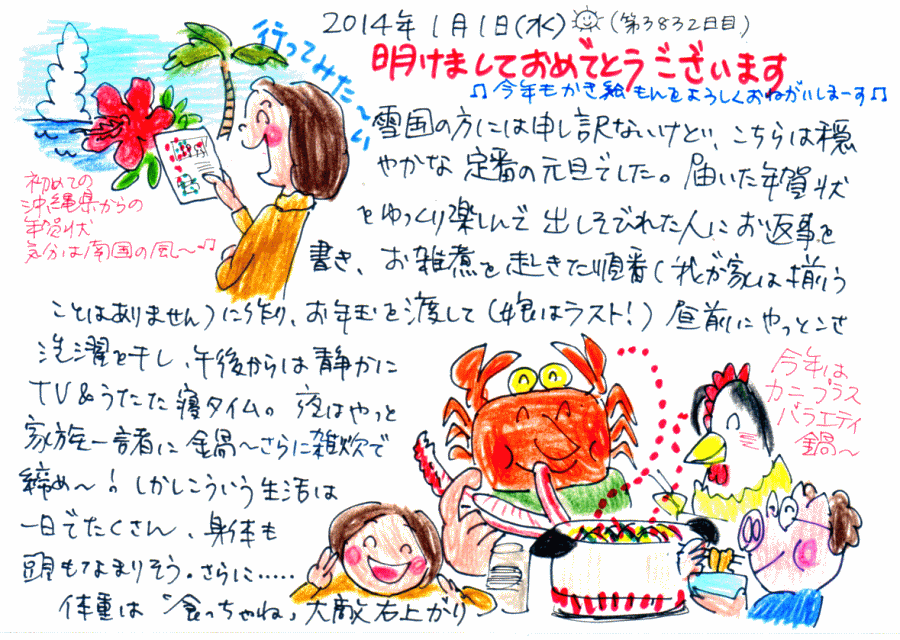 2014年1月1日(水)(第3832日目)
明けましておめでとうございます
♫今年もかき絵もんをよろしくおねがいしまーす♫
行ってみた〜い
雪国の方には申し訳ないけど、こちらは穏
やかな定番の元旦でした。届いた年賀状
をゆっくり楽しんで出しそびれた人にお返事を
書き、お雑煮を起きた順番(我が家は揃う
ことはありません)に作り、お年玉を渡して(娘はラスト!)昼前にやっとこさ
洗濯を干し、午後からは静かに
TV&うたた寝タイム。夜はやっと
家族一諸に鍋〜さらに雑炊で
締め〜!しかしこういう生活は
一日でたくさん、身体も
頭もなまりそう。さらに.....
体重は"食っちゃね"大敵右上がり
初めての
沖縄県からの
年賀状
気分は南国の風〜♫
今年は
カニプラス
バラエティ
鍋〜